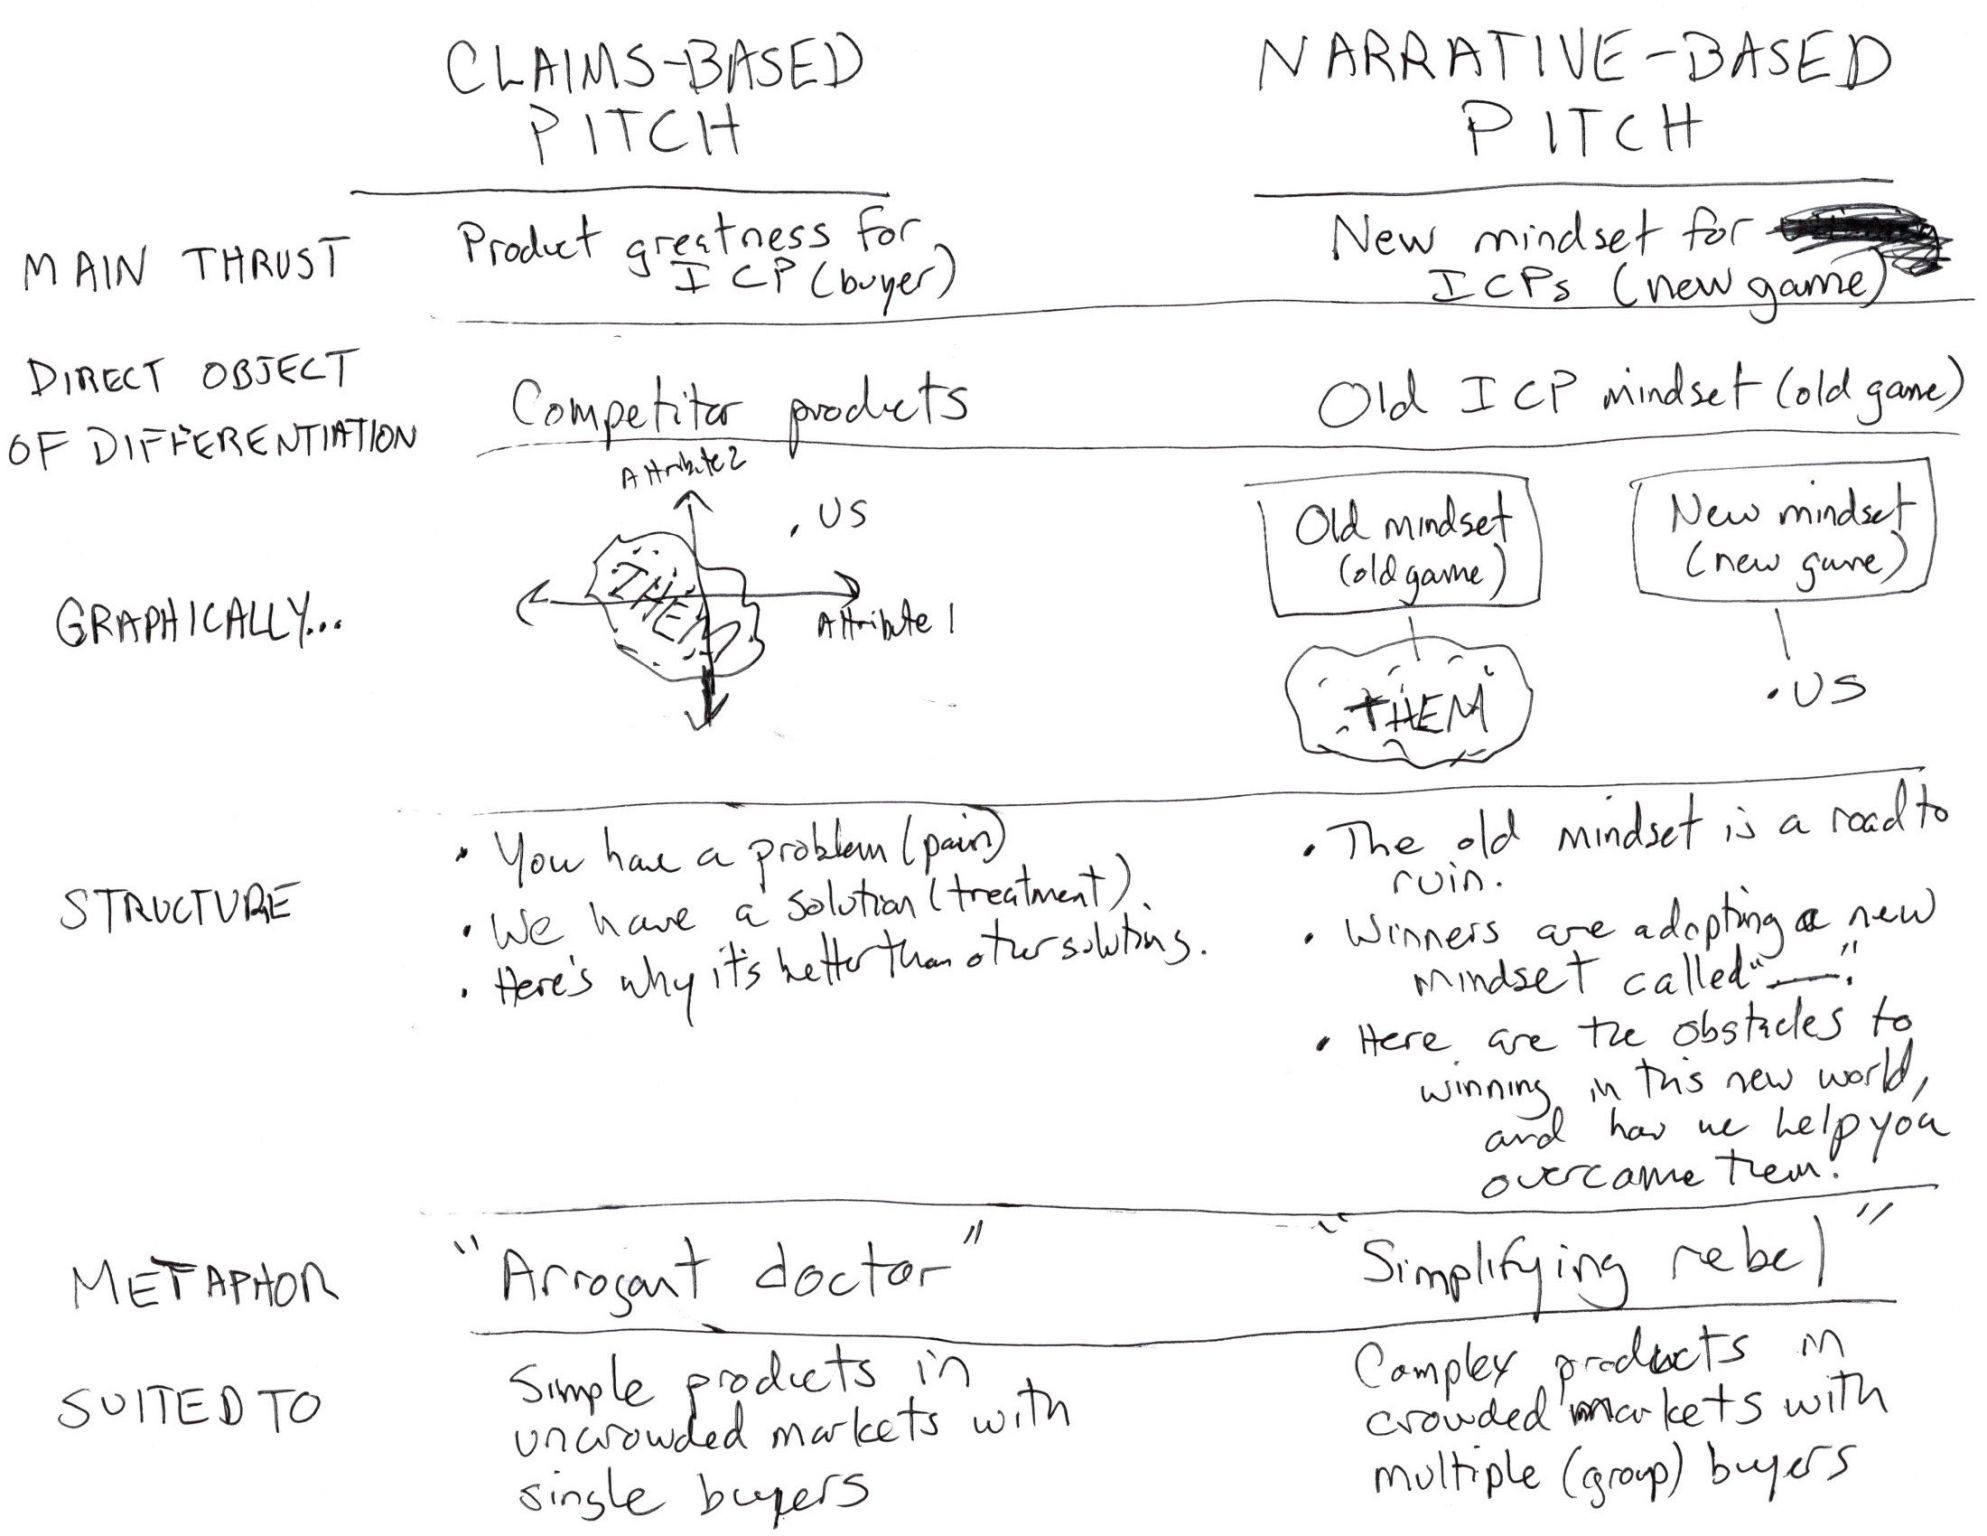 CLAIMS-BASED
PITCH
NARRATIVE-BASED
PITCH
MAIN THRUST
Product greatness for
ICP (buyer)
New mindset for
ICPs (new game)
DIRECT OBJECT
OF DIFFERENTIATION
Competitor products
Old ICP mindset (old game)
GRAPHICALLY...
Attribute 2
. US
THEM
Attribute 1
Old mindset
(old game)
New mindset
(new game)
THEM
• US
STRUCTURE
• You have a problem (pain)
• We have a solution (treatment).
• Here's why it's better than other solutions.
• The old mindset is a road to
ruin.
• Winners are adopting a new
mindset called "___."
• Here are the obstacles to
winning in this new world,
and how we help you
overcome them.
METAPHOR
"Arrogant doctor"
"Simplifying rebel"
SUITED TO
Simple products in
uncrowded markets with
single buyers
Complex products in
crowded markets with
multiple (group) buyers